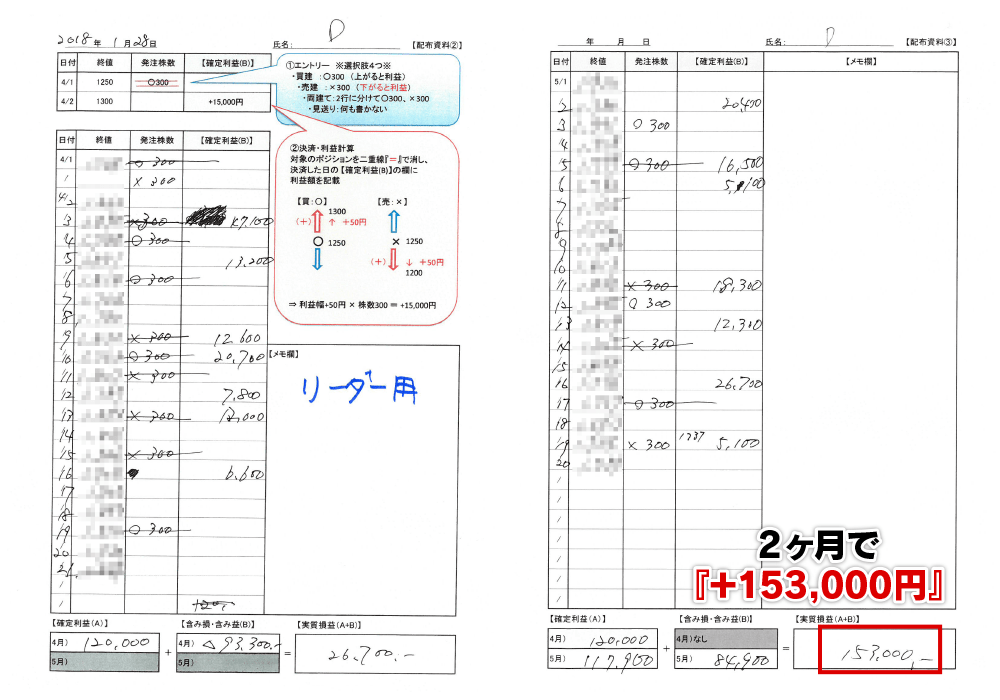 2018年 1月28日
氏名: D 【配布資料②】
日付 終値 発注株数 【確定利益(B)】
4/1 1250 〇300
4/2 1300 +15,000円
①エントリー ※選択肢4つ※
・買建 :〇300 (上がると利益)
・売建 :×300 (下がると利益)
・両建て:2行に分けて〇300、×300
・見送り:何も書かない
②決済・利益計算
対象のポジションを二重線『=』で消し、
決済した日の【確定利益(B)】の欄に
利益額を記載
【買:〇】 【売:×】
1300
(+) ↑ +50円
〇 1250 × 1250
(+) ↓ +50円
1200
⇒ 利益幅+50円 × 株数300 = +15,000円
日付 終値 発注株数 【確定利益(B)】
4/1 〇 300
/ × 300
4/2
3 ×300
4 〇300
5 13,200
6 〇300
7
8
9 × 300 12,600
10 〇300 20,700
11 × 300
12 7,800
13 × 300
14
15 × 300
16 6,600
17
18
19 〇300
20
21
/
/
【メモ欄】
リーダー用
【確定利益(A)】 【含み損・含み益(B)】 【実質損益(A+B)】
4月) 120,000 + 4月) △93,300.- = 26,700.-
5月) 5月)
年 月 日
氏名: D 【配布資料③】
日付 終値 発注株数 【確定利益(B)】 【メモ欄】
5/1
2 20,400
3 〇300
4
5 〇300 16,500
6 5,100
7
8
9
10
11 × 300 18,300
12 〇300
13 12,300
14 × 300
15
16 26,700
17 〇300
18
19 × 300 5,100
20
/
/
/
/
/
/
/
2ヶ月で
『+153,000円』
【確定利益(A)】 【含み損・含み益(B)】 【実質損益(A+B)】
4月) 120,000 + 4月)なし = 153,000,-
5月) 117,900 5月) 84,900